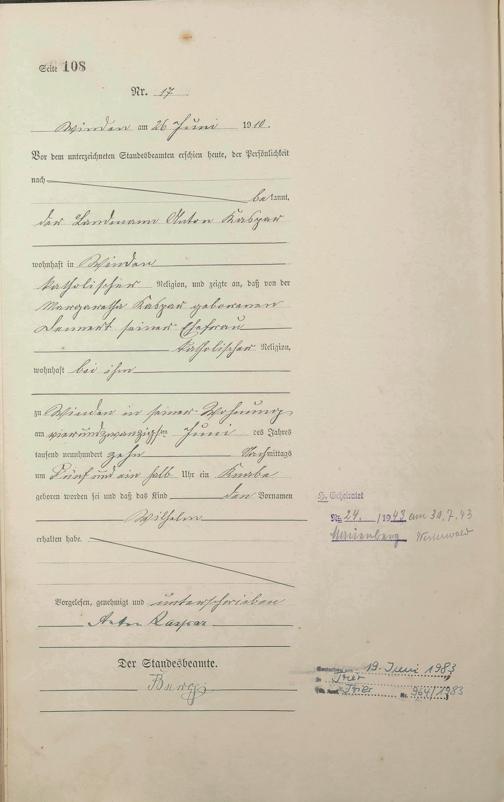 Seite 108
Nr. 17
Winden am 26 Juni 1910.
Vor dem unterzeichneten Standesbeamten erschien heute, der Persönlichkeit
nach
be kannt,
der Landmann Anton Kaspar
wohnhaft in Winden
katholischer Religion, und zeigte an, daß von der
Margaretha Kaspar geborenen
seiner Ehefrau
katholischer Religion,
wohnhaft bei ihm
zu Winden in seiner Wohnung
am vierundzwanzigsten Juni des Jahres
tausend neunhundert zehn Nachmittags
um Fünf und ein halb Uhr ein Knabe
geboren worden sei und daß das Kind den Vornamen
Wilhelm
erhalten habe.
Vorgelesen, genehmigt und unterschrieben
Anton Kaspar
Der Standesbeamte.
H. Geheiratet
Nr. 24 /1943 am 30.7.43
Marienberg Westerwald
Gestorben am 19. Juni 1983
in Trier
Trier Nr. 964/1983